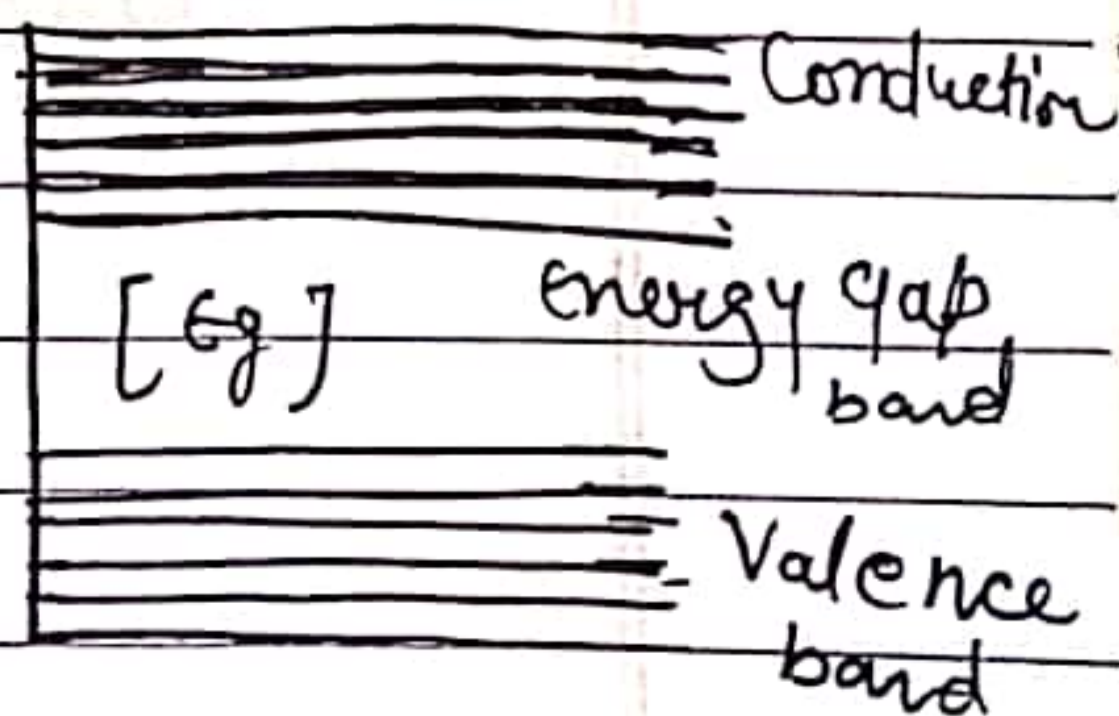 Conduction
[Eg] Energy gap
band
Valence
band